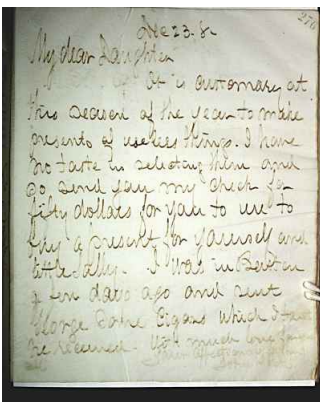 Dec 23. 8
My dear Daughter
It is customary at
this season of the year to make
presents of useless things. I have
no taste in selecting them and
so send you my check for
fifty dollars for you to use to
buy a present for yourself and
little Sally. I was in Boston
a few days ago and sent
George some Cigars which I
he received. With much love